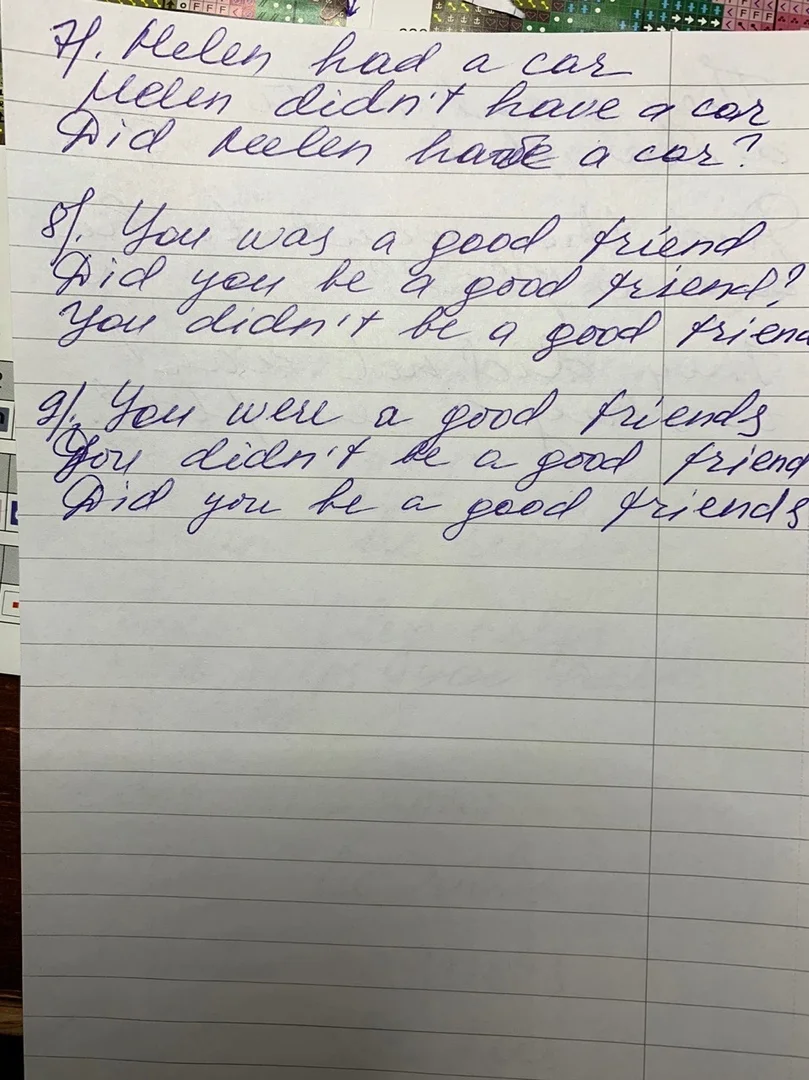 7). Helen had a car
Helen didn't have a car
Did Helen have a car?
8). You was a good friend
Did you be a good friend?
You didn't be a good friend
9). You were a good friends
You didn't be a good friend
Did you be a good friends